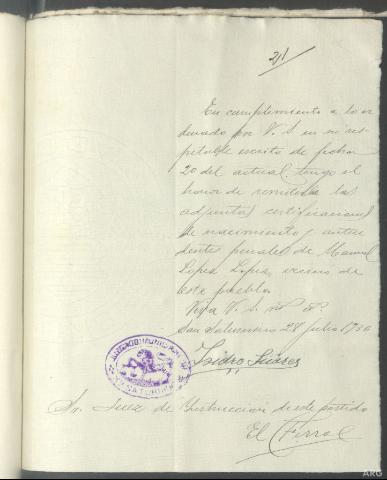 21
En cumplimiento a lo or
denado por V. S en su res
petable escrito de fecha
20 del actual tengo el
honor de remitirle las
adjuntas certificaciones
de nacimiento y antece
dentes penales de Manuel
Lopez Lopez vecino de
este pueblo
Viva V. S. m. a.
San Saturnino 28 Julio 1936
Isidro Suárez
JUZGADO MUNICIPAL
Sr. Juez de Instruccion de este partido
El Ferrol
ARG